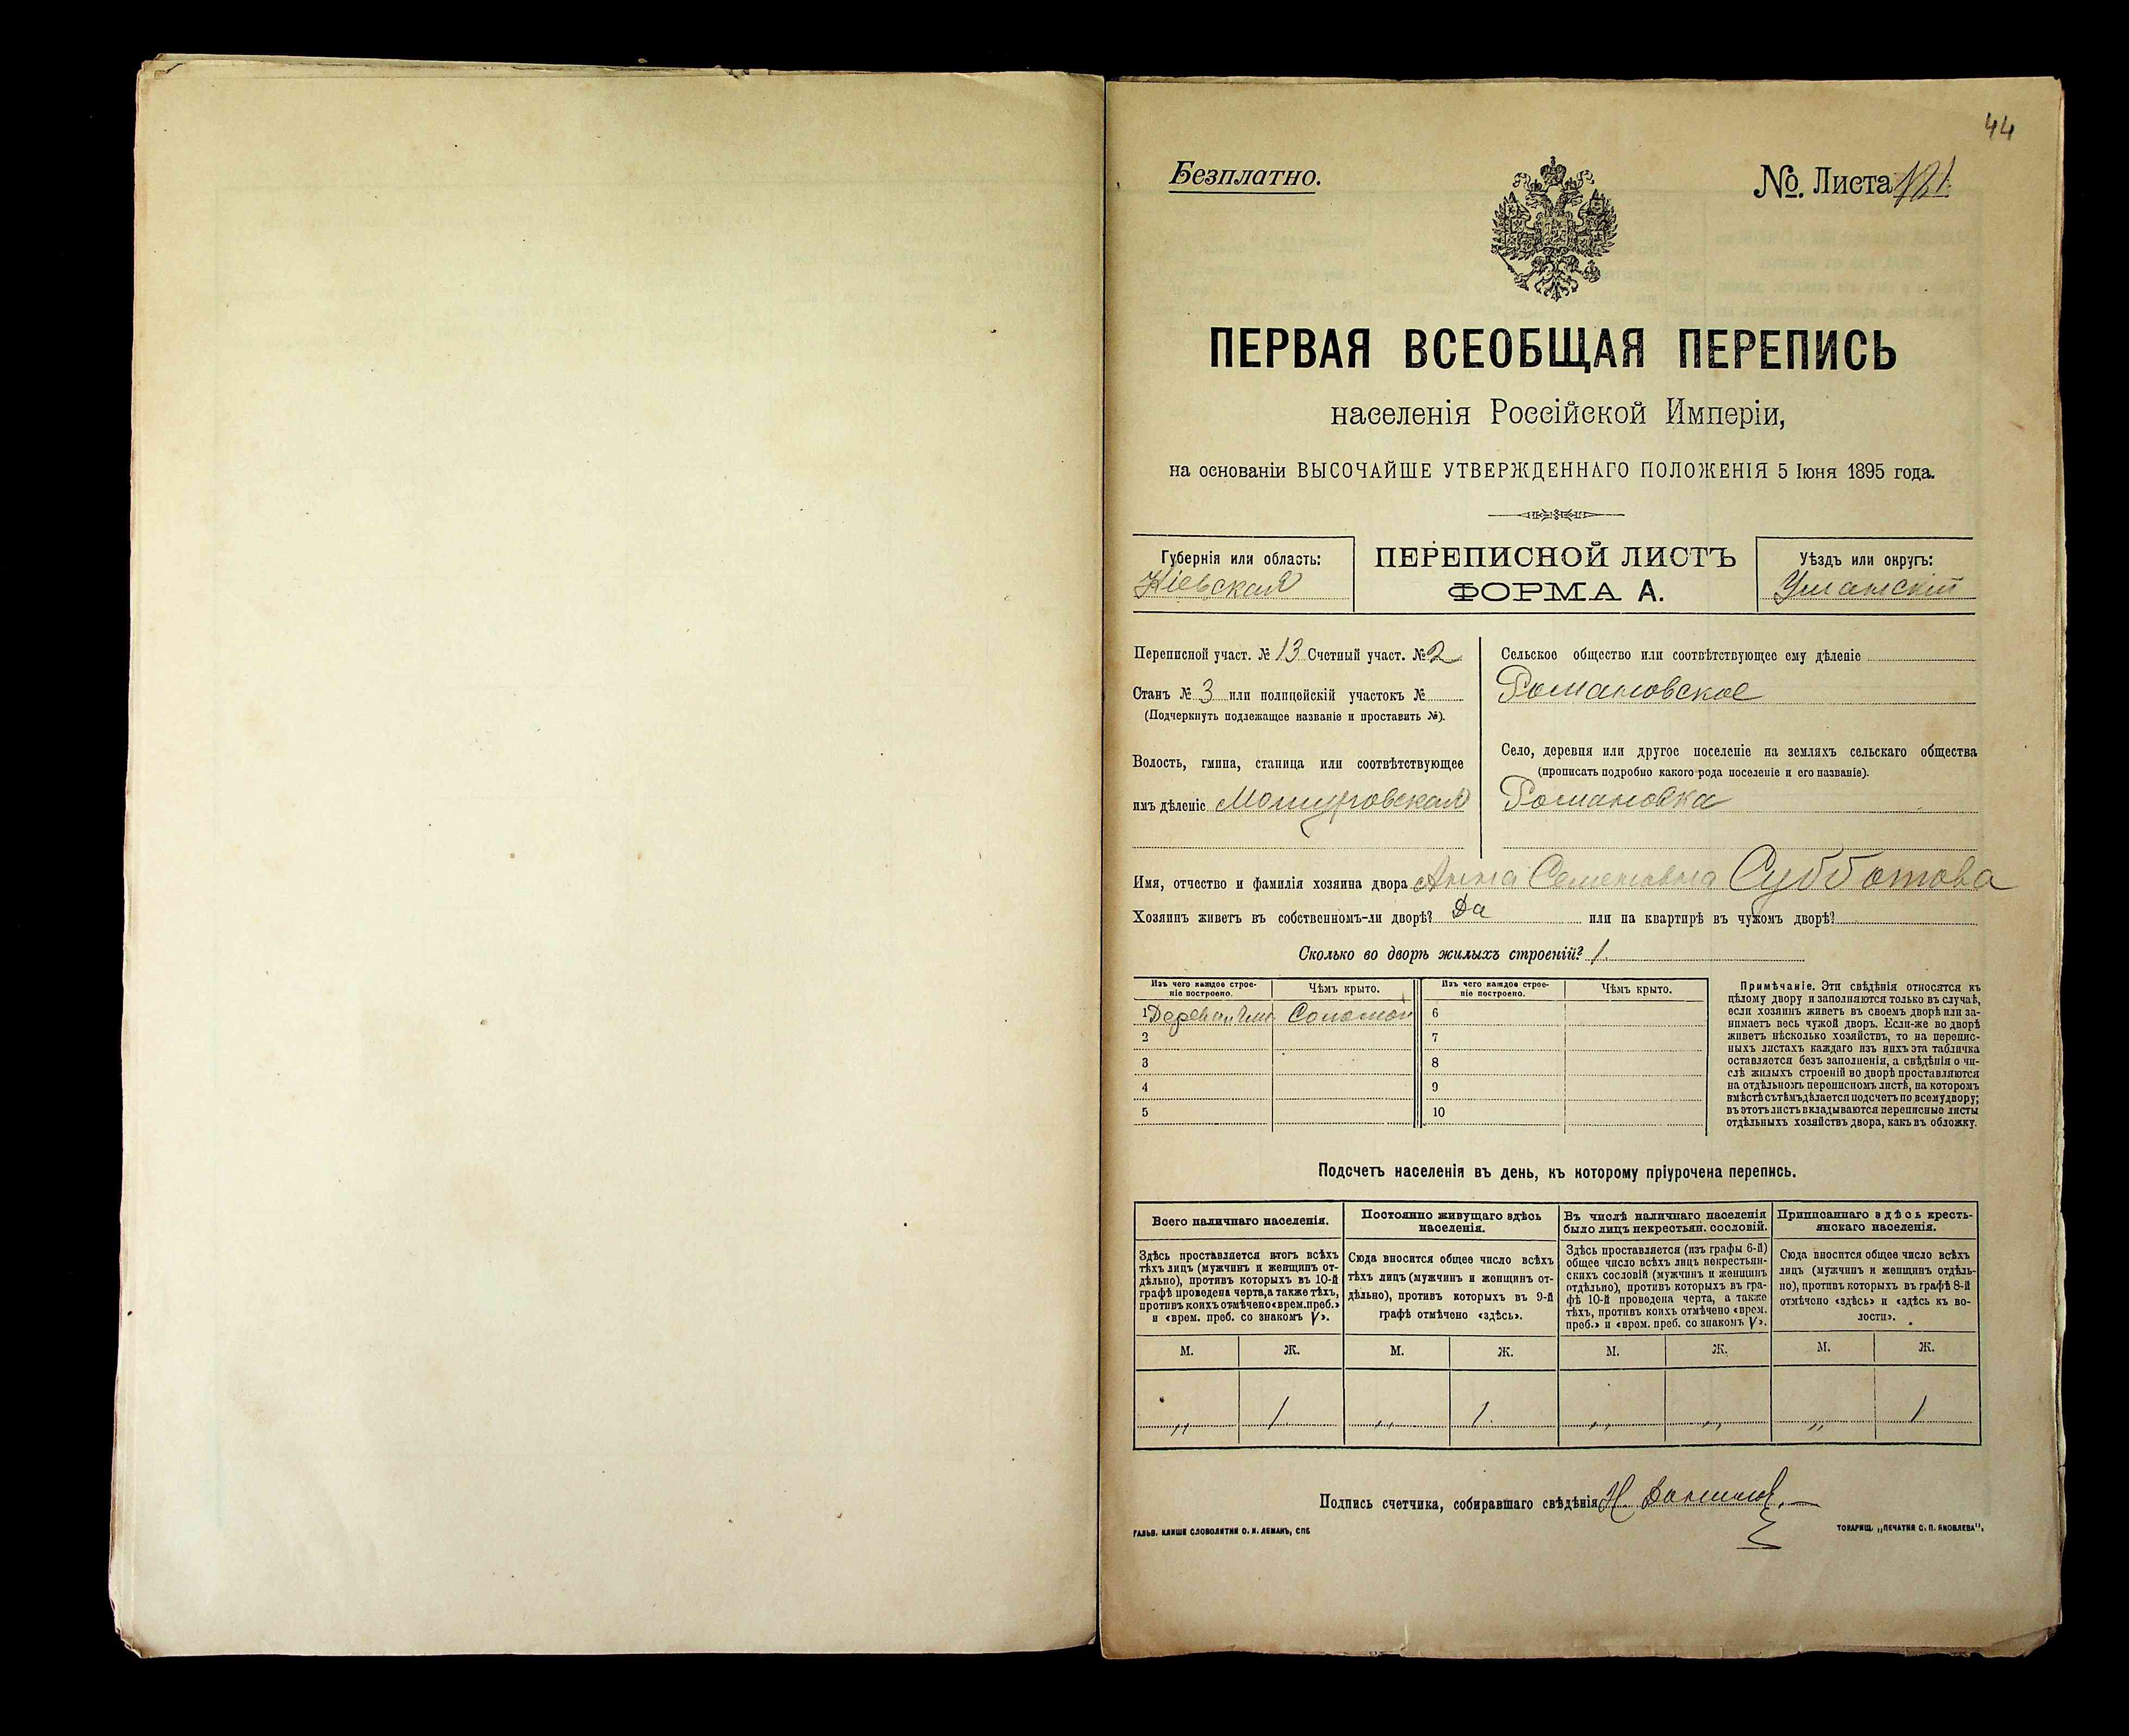 44
Безплатно.
№. Листа 121
ПЕРВАЯ ВСЕОБЩАЯ ПЕРЕПИСЬ
населенія Россійской Имперіи,
на основаніи ВЫСОЧАЙШЕ УТВЕРЖДЕННАГО ПОЛОЖЕНІЯ 5 Іюня 1895 года.
Губернія или область:
Кіевская
ПЕРЕПИСНОЙ ЛИСТЪ
ФОРМА А.
Уѣздъ или округъ:
Уманскій
Переписной участ. № 13 Счетный участ. № 2
Станъ № 3 или полицейскій участокъ №
(Подчеркнуть подлежащее названіе и проставить №).
Волость, гмина, станица или соотвѣтствующее
имъ дѣленіе
Сельское общество или соотвѣтствующее ему дѣленіе
Романовское
Село, деревня или другое поселеніе на земляхъ сельскаго общества
(прописать подробно какого рода поселеніе и его названіе).
Романовка
Имя, отчество и фамилія хозяина двора Анна Семеновна Субботова
Хозяинъ живетъ въ собственномъ-ли дворѣ? Да или на квартирѣ въ чужомъ дворѣ?
Сколько во дворѣ жилыхъ строеній? 1.
Изъ чего каждое строе-
ніе построено.
Чѣмъ крыто.
Изъ чего каждое строе-
ніе построено.
Чѣмъ крыто.
1 Соломой 6
2 7
3 8
4 9
5 10
Примѣчаніе. Эти свѣдѣнія относятся къ
цѣлому двору и заполняются только въ случаѣ,
если хозяинъ живетъ въ своемъ дворѣ или за-
нимаетъ весь чужой дворъ. Если-же во дворѣ
живетъ нѣсколько хозяйствъ, то на перепис-
ныхъ листахъ каждаго изъ нихъ эта табличка
оставляется безъ заполненія, а свѣдѣнія о чи-
слѣ жилыхъ строеній во дворѣ проставляются
на отдѣльномъ переписномъ листѣ, на которомъ
вмѣстѣ съ тѣмъ дѣлается подсчетъ по всему двору;
въ этотъ листъ вкладываются переписные листы
отдѣльныхъ хозяйствъ двора, какъ въ обложку.
Подсчетъ населенія въ день, къ которому пріурочена перепись.
Всего наличнаго населенія.
Здѣсь проставляется итогъ всѣхъ
тѣхъ лицъ (мужчинъ и женщинъ от-
дѣльно), противъ которыхъ въ 10-й
графѣ проведена черта, а также тѣхъ,
противъ коихъ отмѣчено «врем. преб.»
и «врем. преб. со знакомъ V».
Постоянно живущаго здѣсь
населенія.
Сюда вносится общее число всѣхъ
тѣхъ лицъ (мужчинъ и женщинъ от-
дѣльно), противъ которыхъ въ 9-й
графѣ отмѣчено «здѣсь».
Въ числѣ наличнаго населенія
было лицъ некрестьян. сословій.
Здѣсь проставляется (изъ графы 6-й)
общее число всѣхъ лицъ некрестьян-
скихъ сословій (мужчинъ и женщинъ
отдѣльно), противъ которыхъ въ гра-
фѣ 10-й проведена черта, а также
тѣхъ, противъ коихъ отмѣчено «врем.
преб.» и «врем. преб. со знакомъ V».
Приписаннаго здѣсь кресть-
янскаго населенія.
Сюда вносится общее число всѣхъ
лицъ (мужчинъ и женщинъ отдѣль-
но), противъ которыхъ въ графѣ 8-й
отмѣчено «здѣсь» и «здѣсь къ во-
лости».
М. Ж. М. Ж. М. Ж. М. Ж.
„ 1 „ 1. „ „ „ 1
Подпись счетчика, собиравшаго свѣдѣнія
ГАЛЬВ. КЛИШЕ СЛОВОЛИТНИ О. И. ЛЕМАНЪ, СПБ
ТОВАРИЩ. „ПЕЧАТНЯ С. П. ЯКОВЛЕВА“.